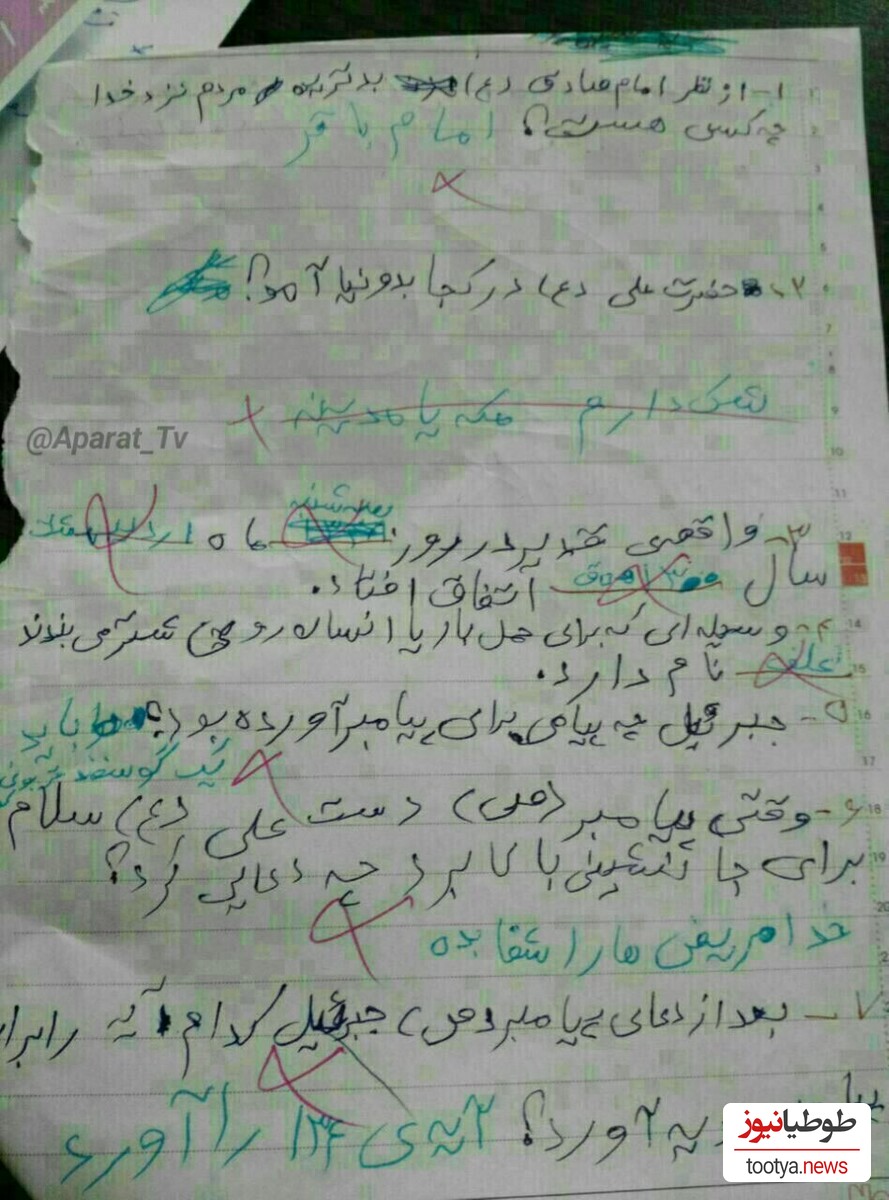 ۱- از نظر امام صادق (ع) بدترین مردم نزد خدا
چه کسی هست؟ امام باقر
۲- حضرت علی (ع) در کجا بدونیا آمد؟
شک دارم مکه یا مدینه
@Aparat_Tv
۳- واقعی غدیر در روز سه شنبه ماه
سال اتفاق افتاد.
۴- وسیله ای که برای حمل بار یا انسان روی شتر می بندند
علف نام دارد.
۵- جبرئیل چه پیامی برای پیامبر آورده بود؟ باید
یک گوسفند
۶- وقتی پیامبر (ص) دست علی (ع) سلام
برای جانشینی بالا برد چه دعایی کرد؟
خدا مریض ما را شفا بده
۷- بعد از دعای پیامبر (ص) جبرئیل کدام آیه را
آورد؟ آیه ی ۱۳۴ را آورد
طوطیانیوز
tootya.news